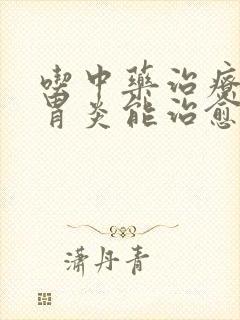 喫中藥治療
胃炎能治愈
瀟丹青